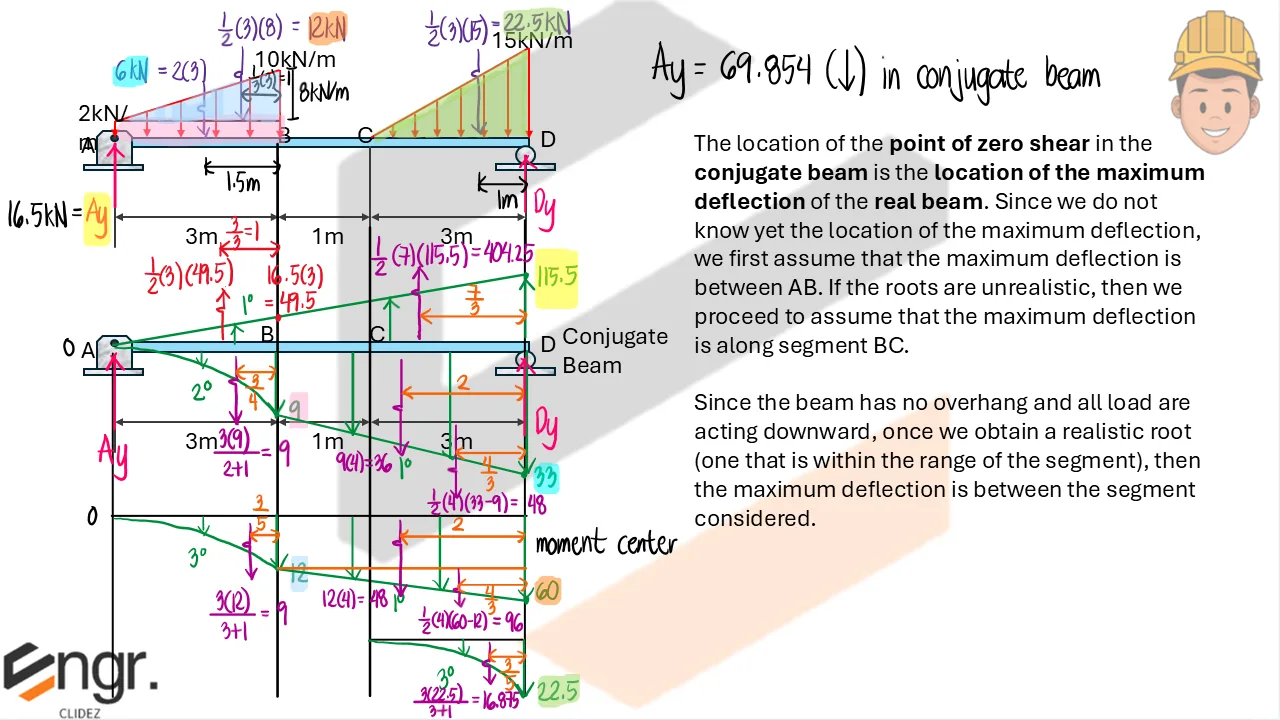 ½(3)(8) = 12kN
½(3)(15) = 22.5kN
15kN/m
6kN = 2(3)
10kN/m
8kN/m
2kN/
m
A
B
C
D
1.5m
1m
Dy
16.5kN = Ay
3m
1m
3m
3/3 = 1
½(7)(115.5) = 404.25
½(3)(49.5)
16.5(3)
= 49.5
1°
115.5
7/3
0
A
B
C
D
Conjugate
Beam
2°
3/4
9
2
Dy
Ay
3m
1m
3m
3(9)/2+1 = 9
9(4)=36
1°
4/3
33
½(4)(33-9) = 48
0
3/5
2
moment center
3°
12
4/3
60
3(12)/3+1 = 9
12(4) = 48
1°
½(4)(60-12) = 96
3°
3/5
22.5
3(22.5)/3+1 = 16.875
Engr.
CLIDEZ
Ay = 69.854 (↓) in conjugate beam
The location of the point of zero shear in the
conjugate beam is the location of the maximum
deflection of the real beam. Since we do not
know yet the location of the maximum deflection,
we first assume that the maximum deflection is
between AB. If the roots are unrealistic, then we
proceed to assume that the maximum deflection
is along segment BC.
Since the beam has no overhang and all load are
acting downward, once we obtain a realistic root
(one that is within the range of the segment), then
the maximum deflection is between the segment
considered.